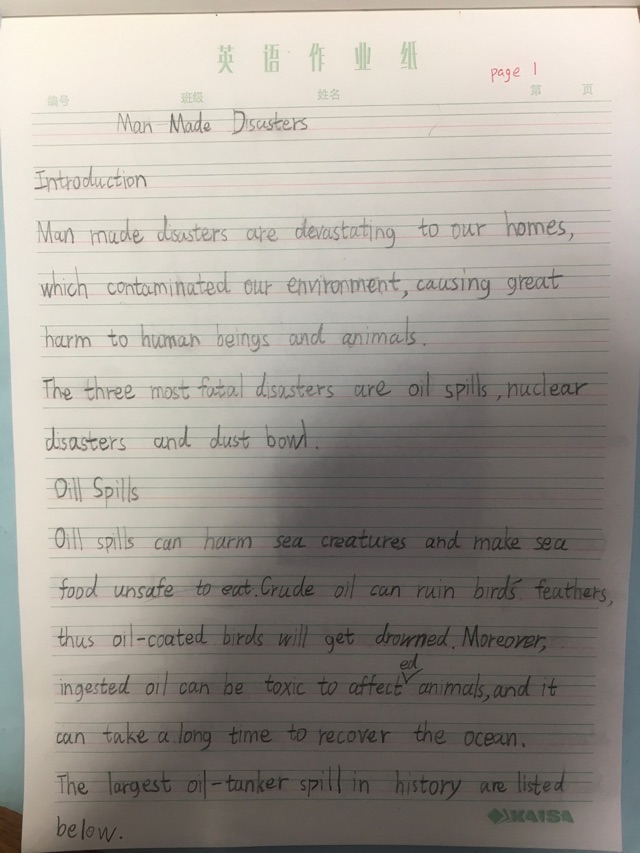 英语作业纸
page 1
编号 班级 姓名 第 页
Man Made Disasters
Introduction
Man made disasters are devastating to our homes,
which contaminated our environment, causing great
harm to human beings and animals.
The three most fatal disasters are oil spills, nuclear
disasters and dust bowl.
Oill Spills
Oill spills can harm sea creatures and make sea
food unsafe to eat. Crude oil can ruin birds' feathers,
thus oil-coated birds will get drowned. Moreover,
ingested oil can be toxic to affected animals, and it
can take a long time to recover the ocean.
The largest oil-tanker spill in history are listed
below.
KAISA